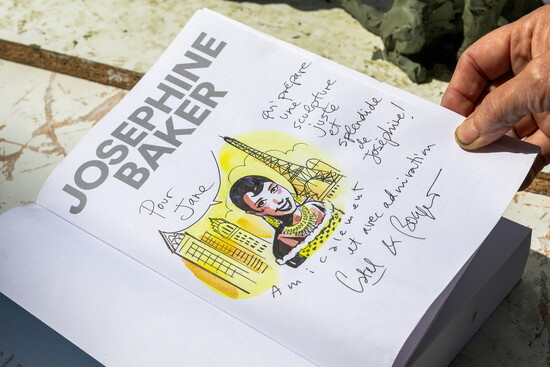 JOSEPHINE
BAKER
Pour
Jane
qui prépare
une
sculpture
juste
et
splendide
de
Joséphine!
Amicalement
et avec admiration
Catel & Bocquet